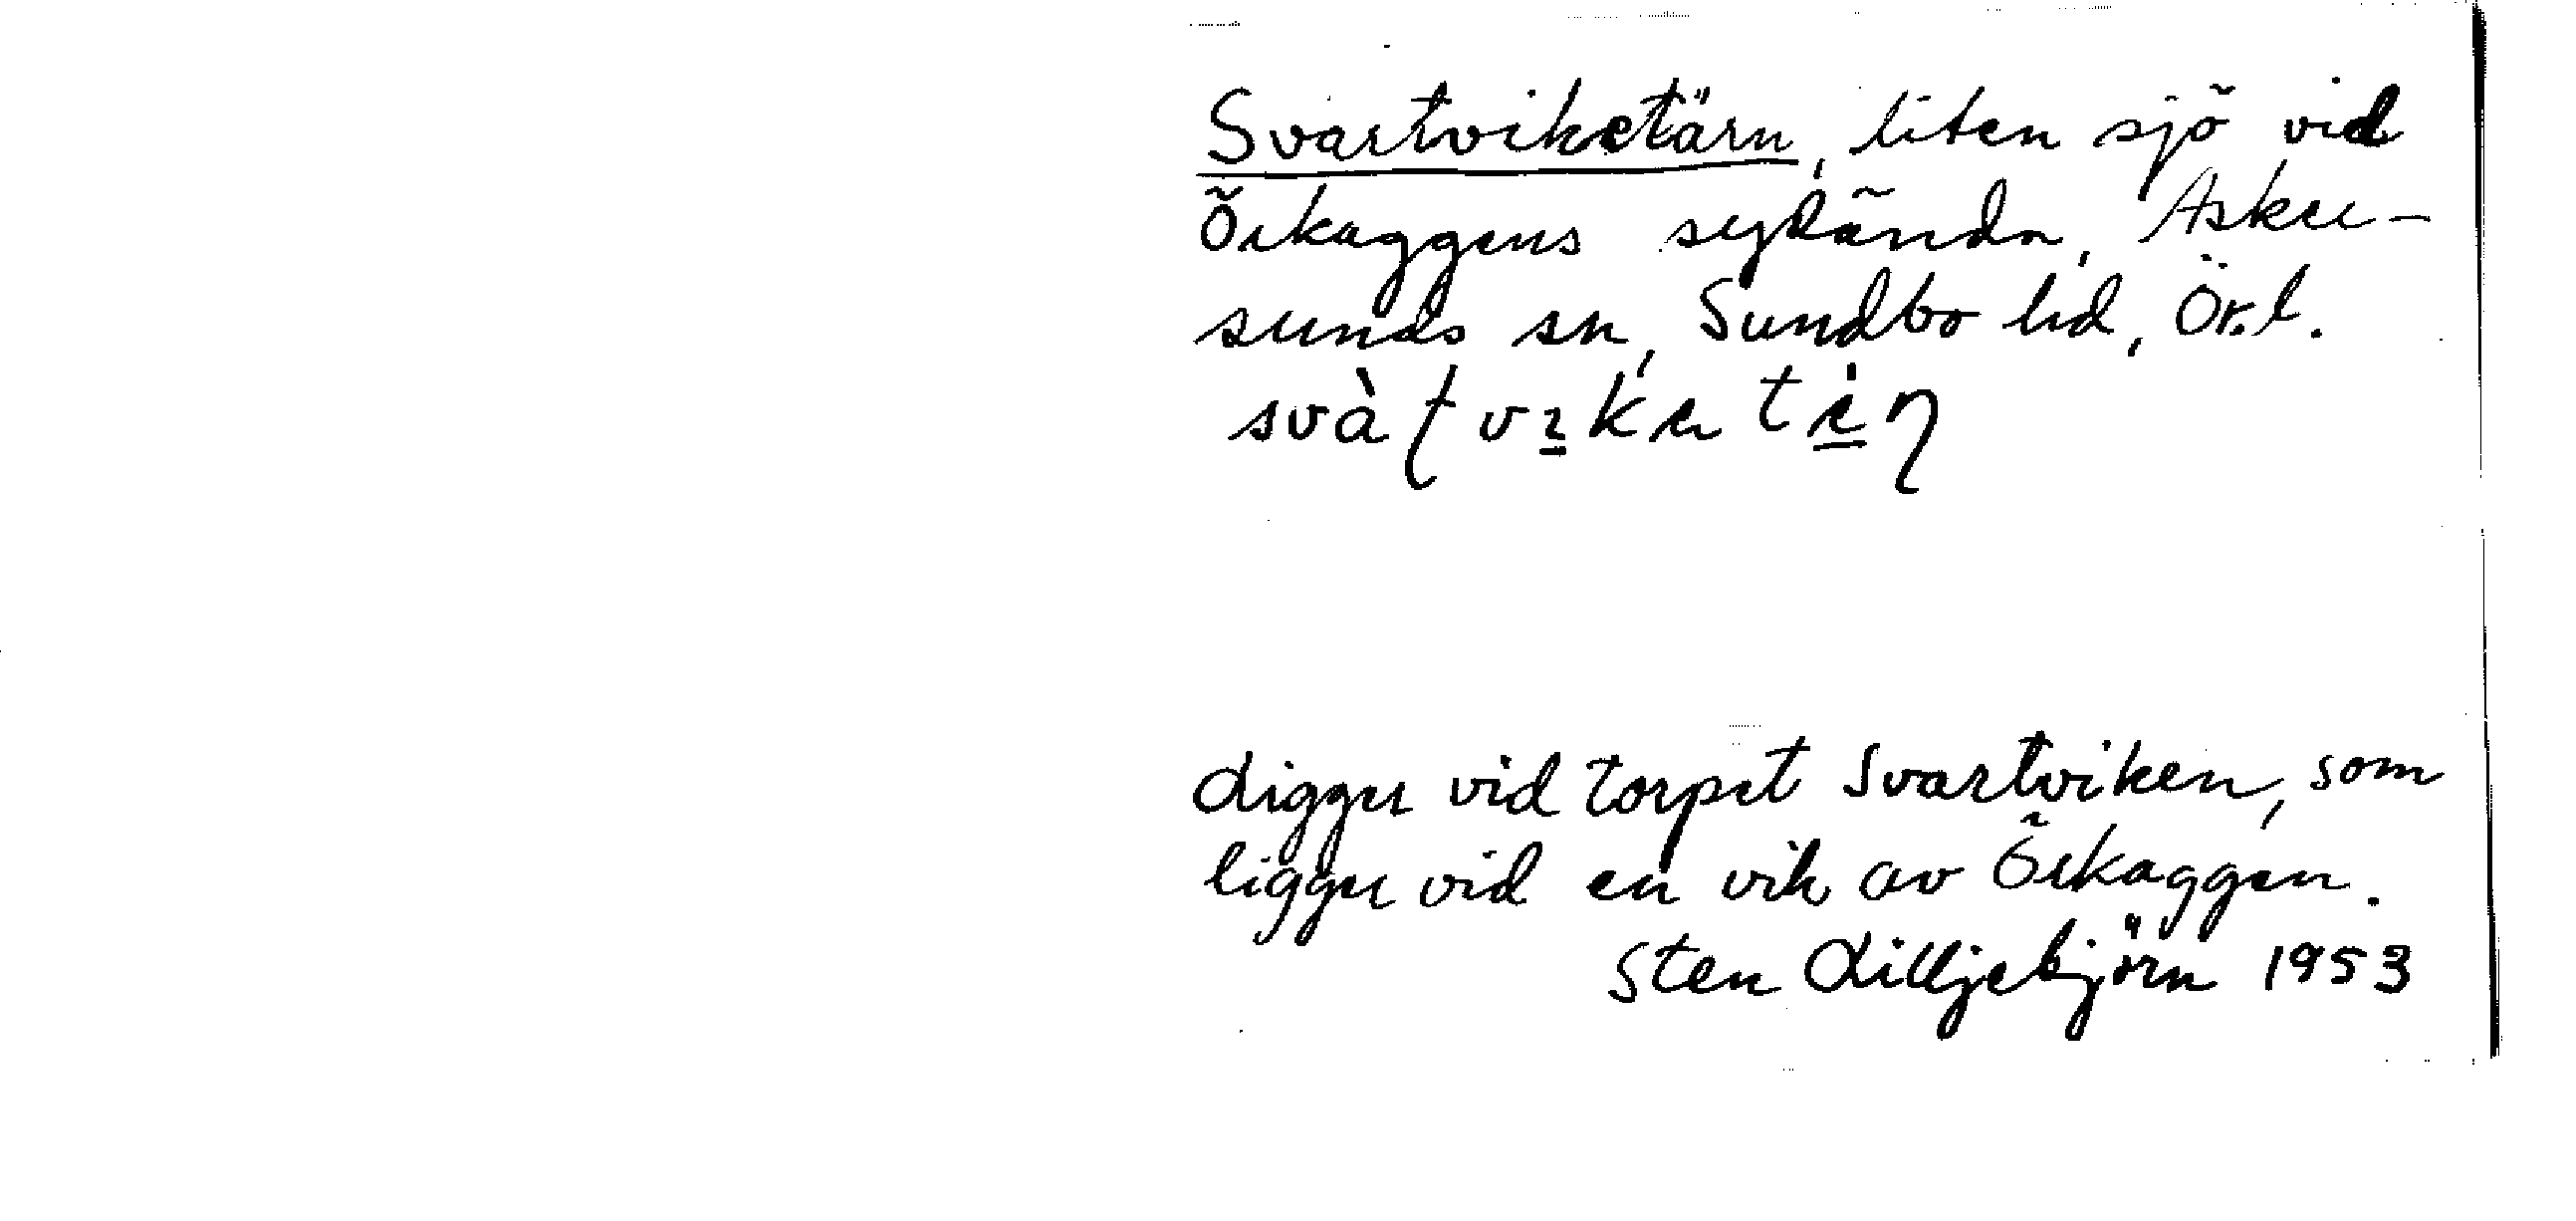 Svartviketärn, liten sjö vid
Örkaggens sydända, Asker-
sunds sn, Sundbo hd, Ör.l.
Ligger vid torpet Svartviken, som
ligger vid en vik av Örkaggen.
Sten Lilljebjörn 1953